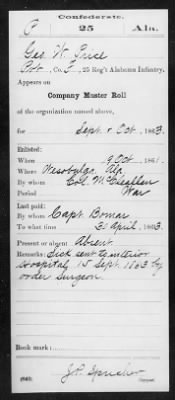 Confederate.
P 25 Ala.
Geo. W. Price
Pvt, Co. C, 25 Reg't Alabama Infantry.
Appears on
Company Muster Roll
of the organization named above,
for Sept & Oct, 1863.
Enlisted:
When 19 Oct, 1861.
Where Ala.
By whom Col. McClellan
Period War
Last paid:
By whom Capt. Bomar
To what time 31 April, 1863.
Present or absent Absent
Remarks: Sick sent to interior
Hospital 15 Sept. 1863 by
order Surgeon.
Book mark:
(642)
Copyist.